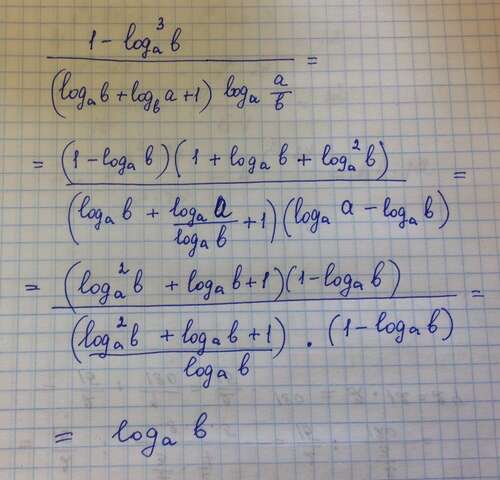 1 - log³ₐ b
(logₐ b + log_b a + 1) logₐ a/b =
= (1 - logₐ b)(1 + logₐ b + log²ₐ b)
(logₐ b + logₐ a/logₐ b + 1)(logₐ a - logₐ b) =
= (log²ₐ b + logₐ b + 1)(1 - logₐ b)
(log²ₐ b + logₐ b + 1)/logₐ b · (1 - logₐ b) =
= logₐ b